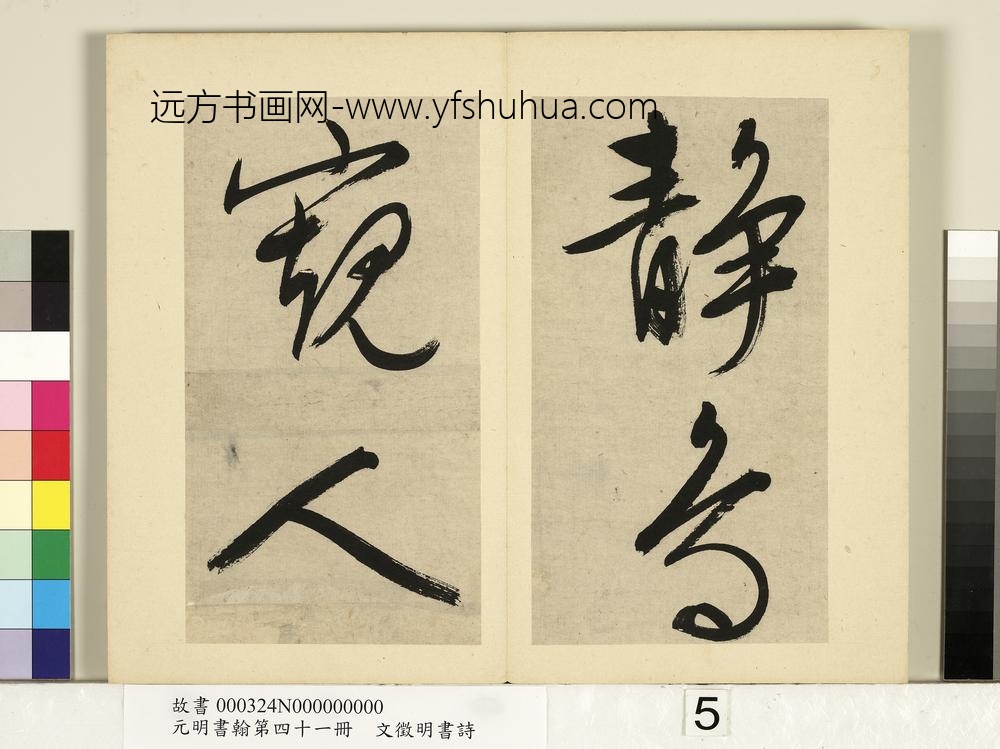 远方书画网-www.yfshuhua.com
静鳥
窺人
故書 000324N000000000
元明書翰第四十一冊 文徵明書詩
5